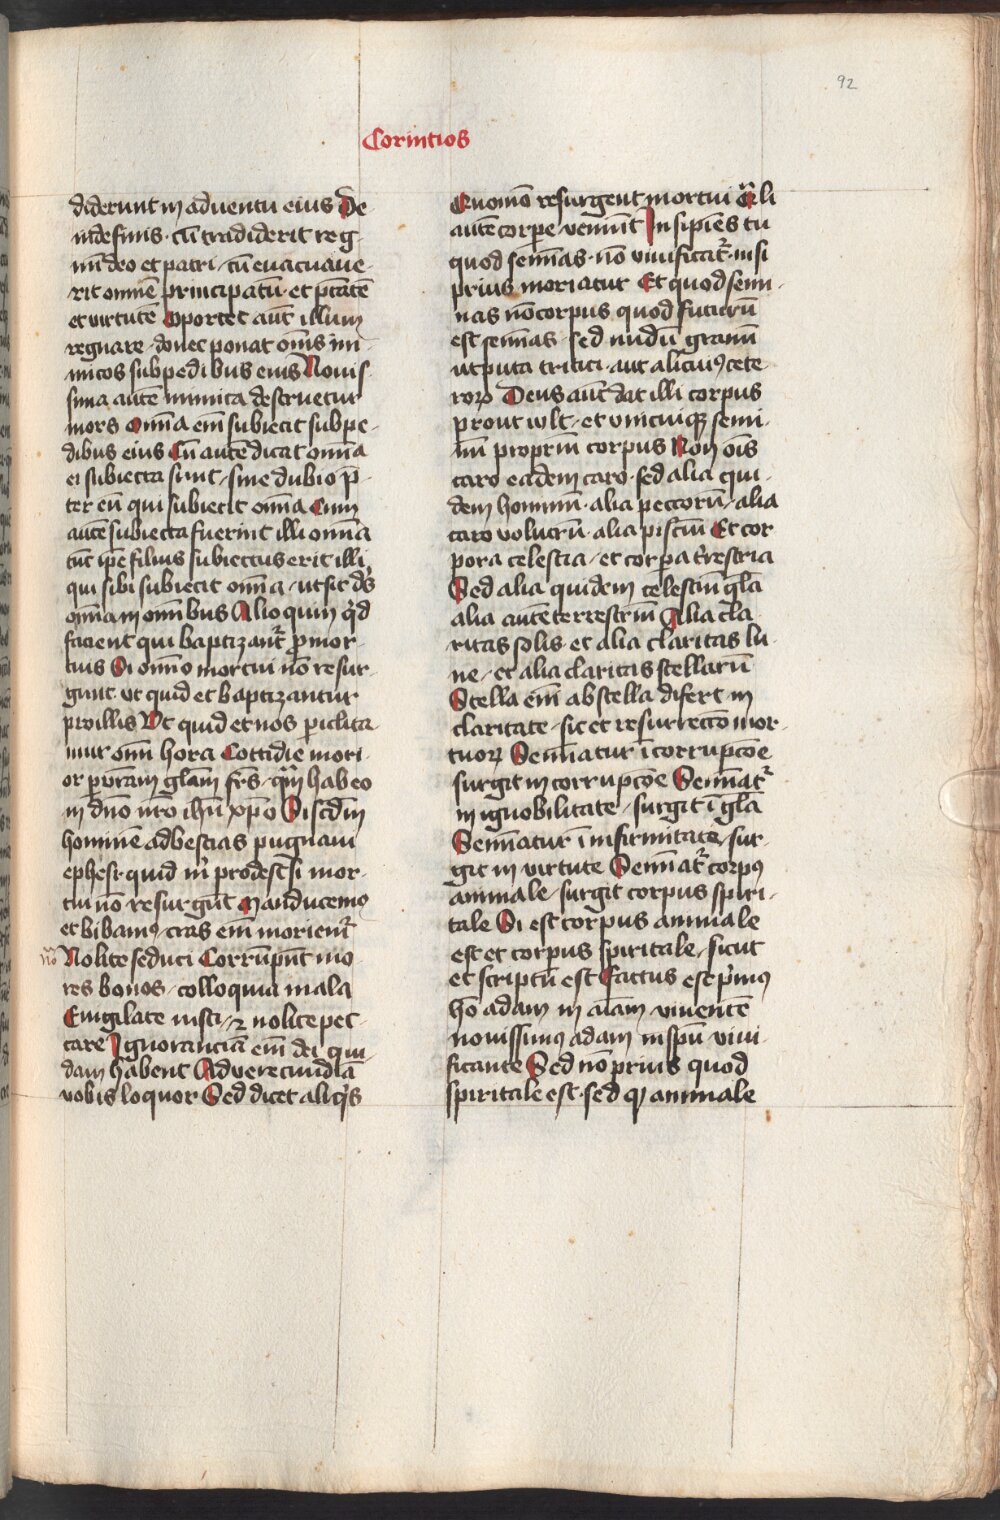 92
Corintios
diderunt in adventu eius De-
inde finis · cū tradiderit reg-
nū deo et patri · cū evacuave-
rit omnē principatū · et ptātē
et virtutē Oportet autē illum
regnare · donec ponat om̄s ini-
micos sub pedibus eius Novis-
sima autē inimica destruetur
mors Om̄ia em̄ subiecit sub pe-
dibus eius Cū autē dicat om̄ia
ei subiecta sunt · sine dubio p̄-
ter eū qui subiecit om̄ia Cum
autē subiecta fuerint illi om̄ia
tūc ip̄e filius subiectus erit illi
qui sibi subiecit om̄ia · ut sit ds̄
om̄ia in omnibus Alioquin qd
facient qui baptizant᷑ p mor-
tuis Si omnino mortui nō resur-
gunt · ut quid et baptizantur
pro illis Ut quid et nos piclita-
mur omni hora Cottidie mori-
or p vram glam frs · quā habeo
in dn̄o nr̄o ihū xp̄o Si scdm̄
hominē ad bestias pugnavi
ephesi · quid m̄ prodest si mor-
tui nō resurgūt Manducemꝰ
et bibamꝰ · cras em̄ moriem᷑
Nolite seduci Corrūpūt mo-
res bonos · colloquia mala
Evigilate iusti · ⁊ nolite pec-
care Ignoranciā em̄ dei qui-
dam habent Ad verecundiā
vobis loquor Sed dicet aliqs
Quomō resurgent mortui Qͣli
autē corpe venient Insipiēs tu
quod seminas · nō vivificat᷑ · nisi
prius moriatur Et quod semi-
nas nō corpus quod futurū
est seminas · sed nudū granū
ut puta tritici · aut alicuiꝰ cete
roꝝ Deus autē dat illi corpus
prout wlt · et unicuiqꝫ semi-
nū propriū corpus Non om̄s
caro eadem caro · sed alia qui-
dem hominū · alia peccorū · alia
caro volucrū · alia pisciū Et cor
pora celestia · et corpa trestria
Sed alia quidem celestiū gla
alia autē terrestriū Alia cla-
ritas solis · et alia claritas lu-
ne · et alia claritas stellarū
Stella em̄ ab stella difert in
claritate · sic et resurrectō mor-
tuoꝝ Seminatur ī corrupcōe
surgit in corrupcōe Seminat᷑
in ignobilitate · surgit ī gla
Seminatur ī infirmitate · sur-
git in virtute Seminat᷑ corpꝰ
animale · surgit corpus spiri-
tale Si est corpus animale
est et corpus spiritale · sicut
et scriptū est Factus est pimus
hō adam in aīam viventē
novissimus adam in spm̄ vivi-
ficantē Sed nō prius quod
spiritale est · sed q animale